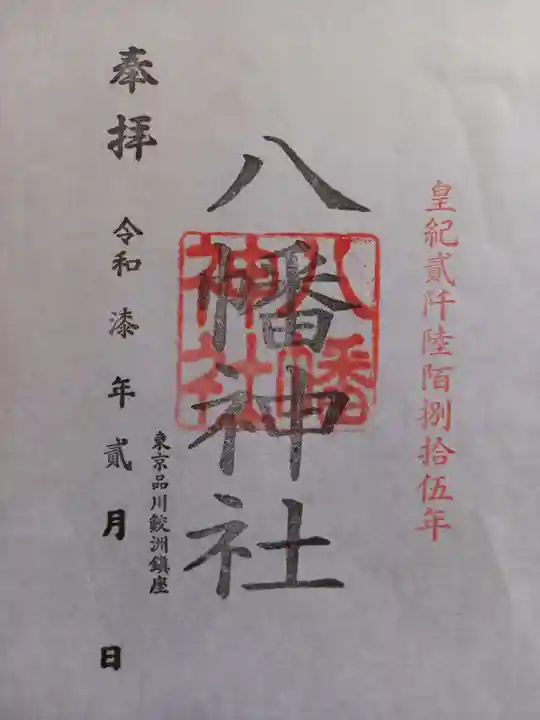 皇紀貳阡陸陌捌拾伍年
八幡神社
八幡
神社
東京品川鮫洲鎮座
奉拝
令和漆年貳月 日